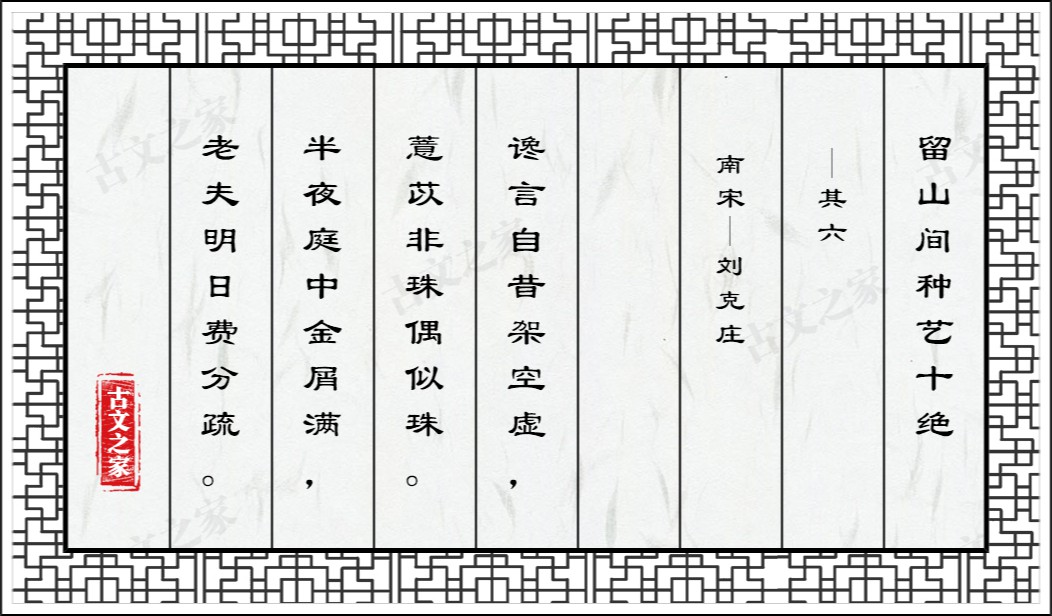 留山间种艺十绝
—其六
南宋—刘克庄
谗言自昔架空虚，
薏苡非珠偶似珠。
半夜庭中金屑满，
老夫明日费分疏。
古文之家